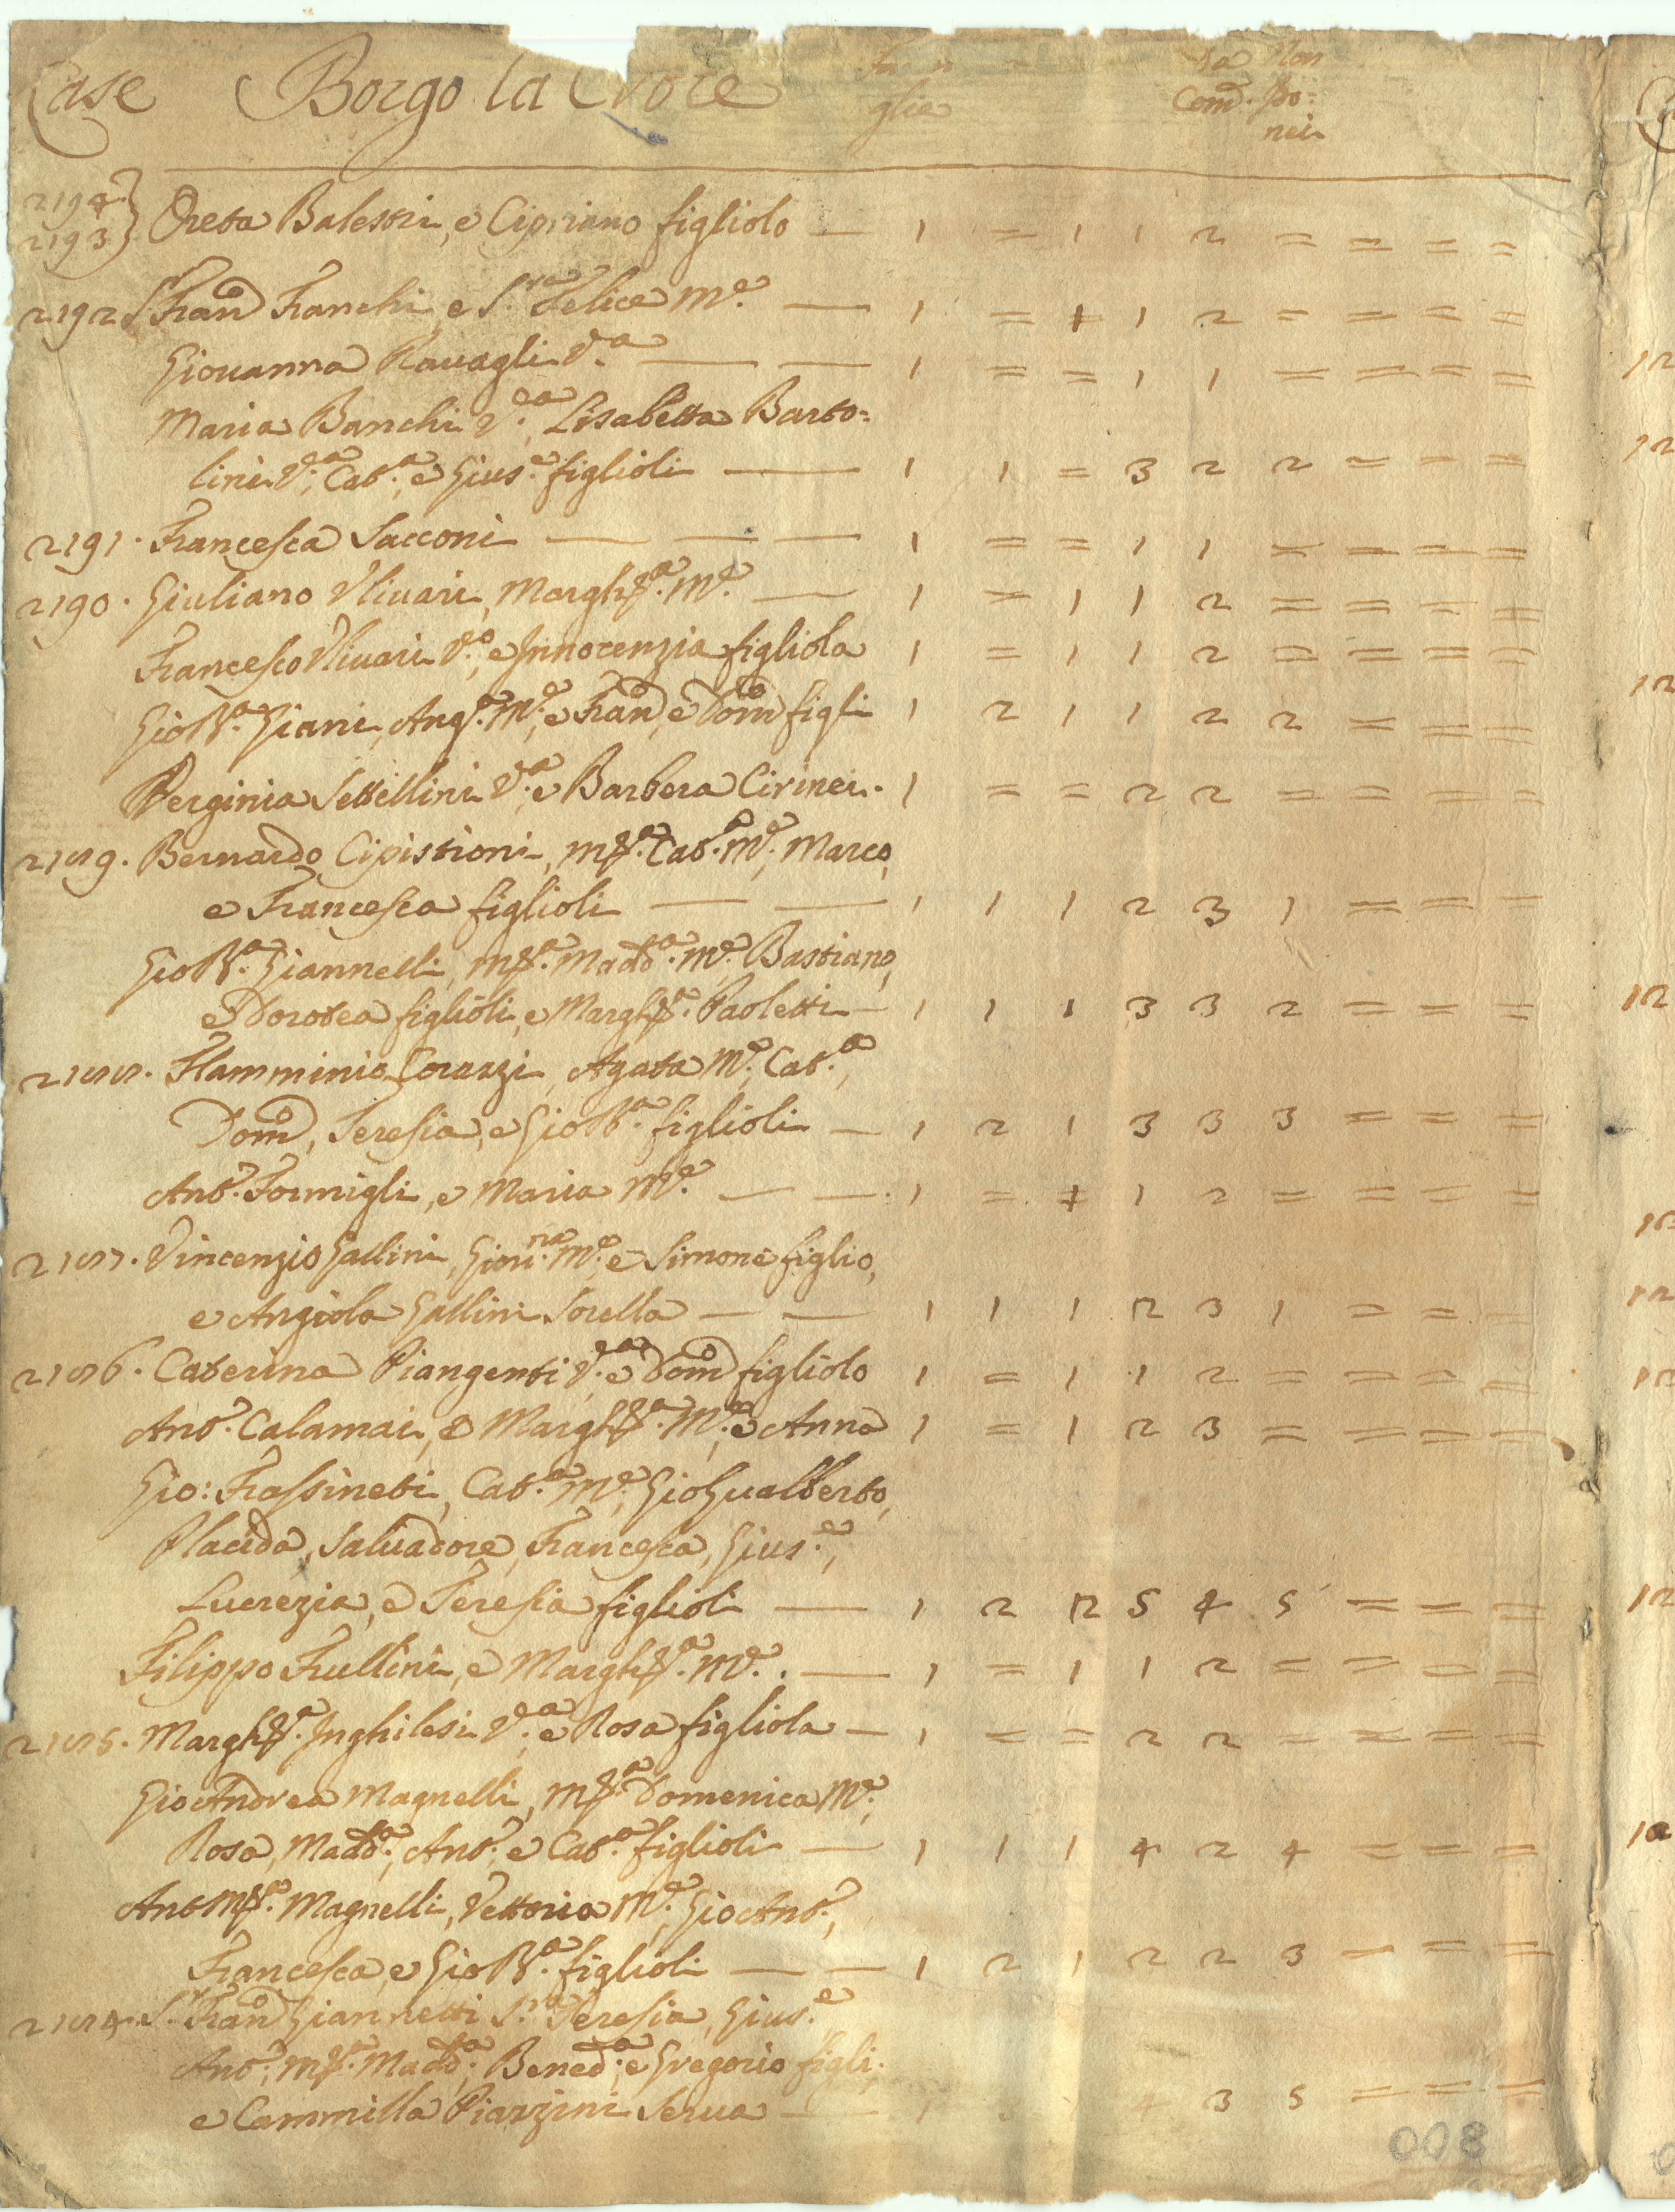 Case Borgo la Croce glie Com.^e Non Po=
nei
2194
2193 } Oreta Balestri, e Cipriano figliolo — 1 = 1 1 2 = = = =
2192 S.^r Fran^co Franchi, e S.^ra Felice M.^e — 1 = + 1 2 = = = =
Giovanna Ravagli V.^a — — 1 = = 1 1 = = = =
Maria Banchi V.^a, Lisabetta Barto=
lini V.^a, Cat.^a, e Gius.^e figlioli — 1 1 = 3 2 2 = = =
2191. Francesca Sacconi — — — 1 = = 1 1 = = = =
2190. Giuliano Ulivari, Margh.^ta M.^e — 1 = 1 1 2 = = = =
Francesco Ulivari V.^o, e Innocenzia figliola 1 = 1 1 2 = = = =
Gio B.^a Giani, Ang.^a M.^e, e Fran^co, e Dom^co figli 1 2 1 1 2 2 = = =
Verginia Settellini V.^a, e Barbera Cirinei. 1 = = 2 2 = = = =
2189. Bernardo Cipistioni, M.^a Cat.^a M.^e, Marco,
e Francesca figlioli — — 1 1 1 2 3 1 = = =
Gio B.^a Giannelli, M.^a Madd.^a M.^e Bastiano,
e Dorotea figlioli, e Margh.^ta Paoletti — 1 1 1 3 3 2 = = =
2188. Flamminio Corazzi, Agata M.^e, Cat.^a,
Dom^co, Teresia, e Gio B.^a figlioli — 1 2 1 3 3 3 = = =
Ant.^o Formigli, e Maria M.^e — — 1 = + 1 2 = = = =
2187. Vincenzio Gallini, Giov.^na M.^e, e Simone figlio,
e Angiola Gallini Sorella — — 1 1 1 2 3 1 = = =
2186. Caterina Piangenti V.^a, e Dom^co figliolo 1 = 1 1 2 = = = =
Ant.^o Calamai, e Margh.^ta M.^e, e Anna 1 = 1 2 3 = = = =
Gio: Frassineti, Cat.^a M.^e, Gio Gualberto,
Placida, Salvadore, Francesca, Gius.^e,
Lucrezia, e Teresia figlioli — 1 2 2 5 4 5 = = =
Filippo Frullini, e Margh.^ta M.^e. — 1 = 1 1 2 = = = =
2185. Margh.^ta Inghilesi V.^a, e Rosa figliola — 1 = = 2 2 = = = =
Gio Andrea Magnelli, M.^a Domenica M.^e,
Rosa, Madd.^a, Ant.^o, e Cat.^a figlioli — 1 1 1 4 2 4 = = =
Ant M.^a Magnelli, Vettoria M.^e, Gio Ant.^o,
Francesca, e Gio B.^a figlioli — — 1 2 1 2 2 3 = = =
2184. S.^r Fran^co Giannetti S.^ra Teresia, Gius.^e
Ant.^o, M.^a Madd.^a, Bened.^a, e Gregorio figli,
e Cammilla Piazzini Serva — 1 4 3 5 = = =
008